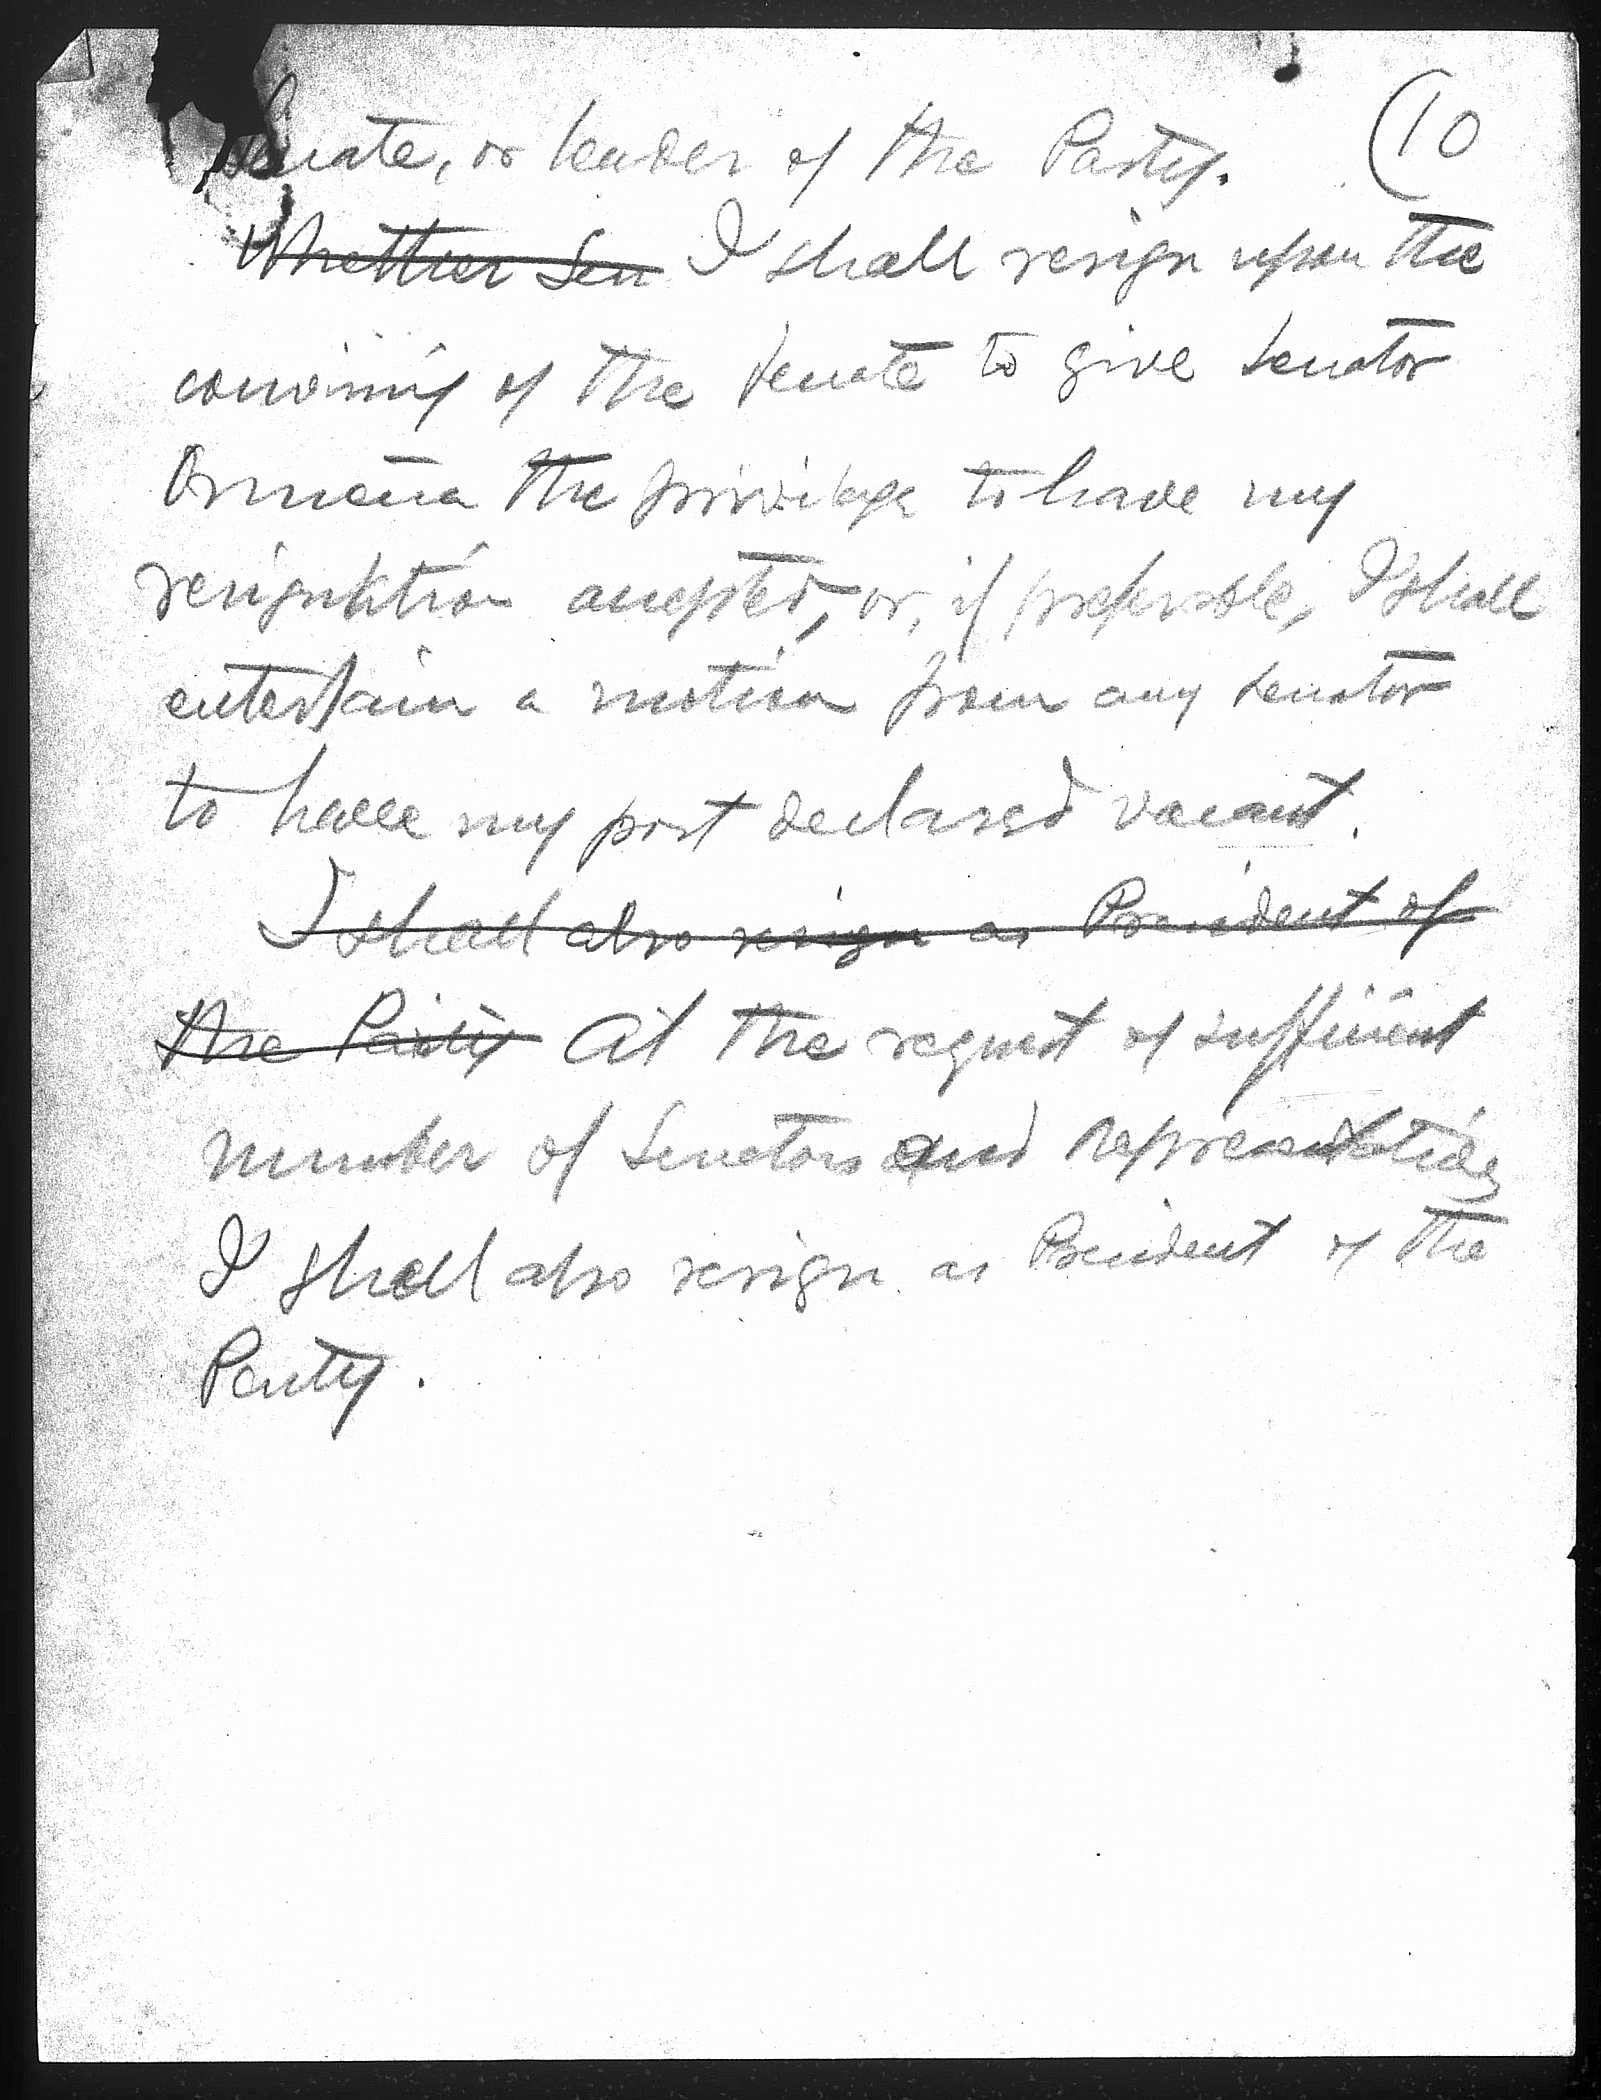 Senate, or leader of the Party. (10
Whether Sen I shall resign upon the
convening of the Senate to give Senator
Osmeña the privilege to have my
resignation accepted, or, if preferable, I shall
entertain a motion from any senator
to have my post declared vacant.
I shall also resign as President of
the Party At the request of sufficient
number of Senators and Representatives
I shall also resign as President of the
Party.